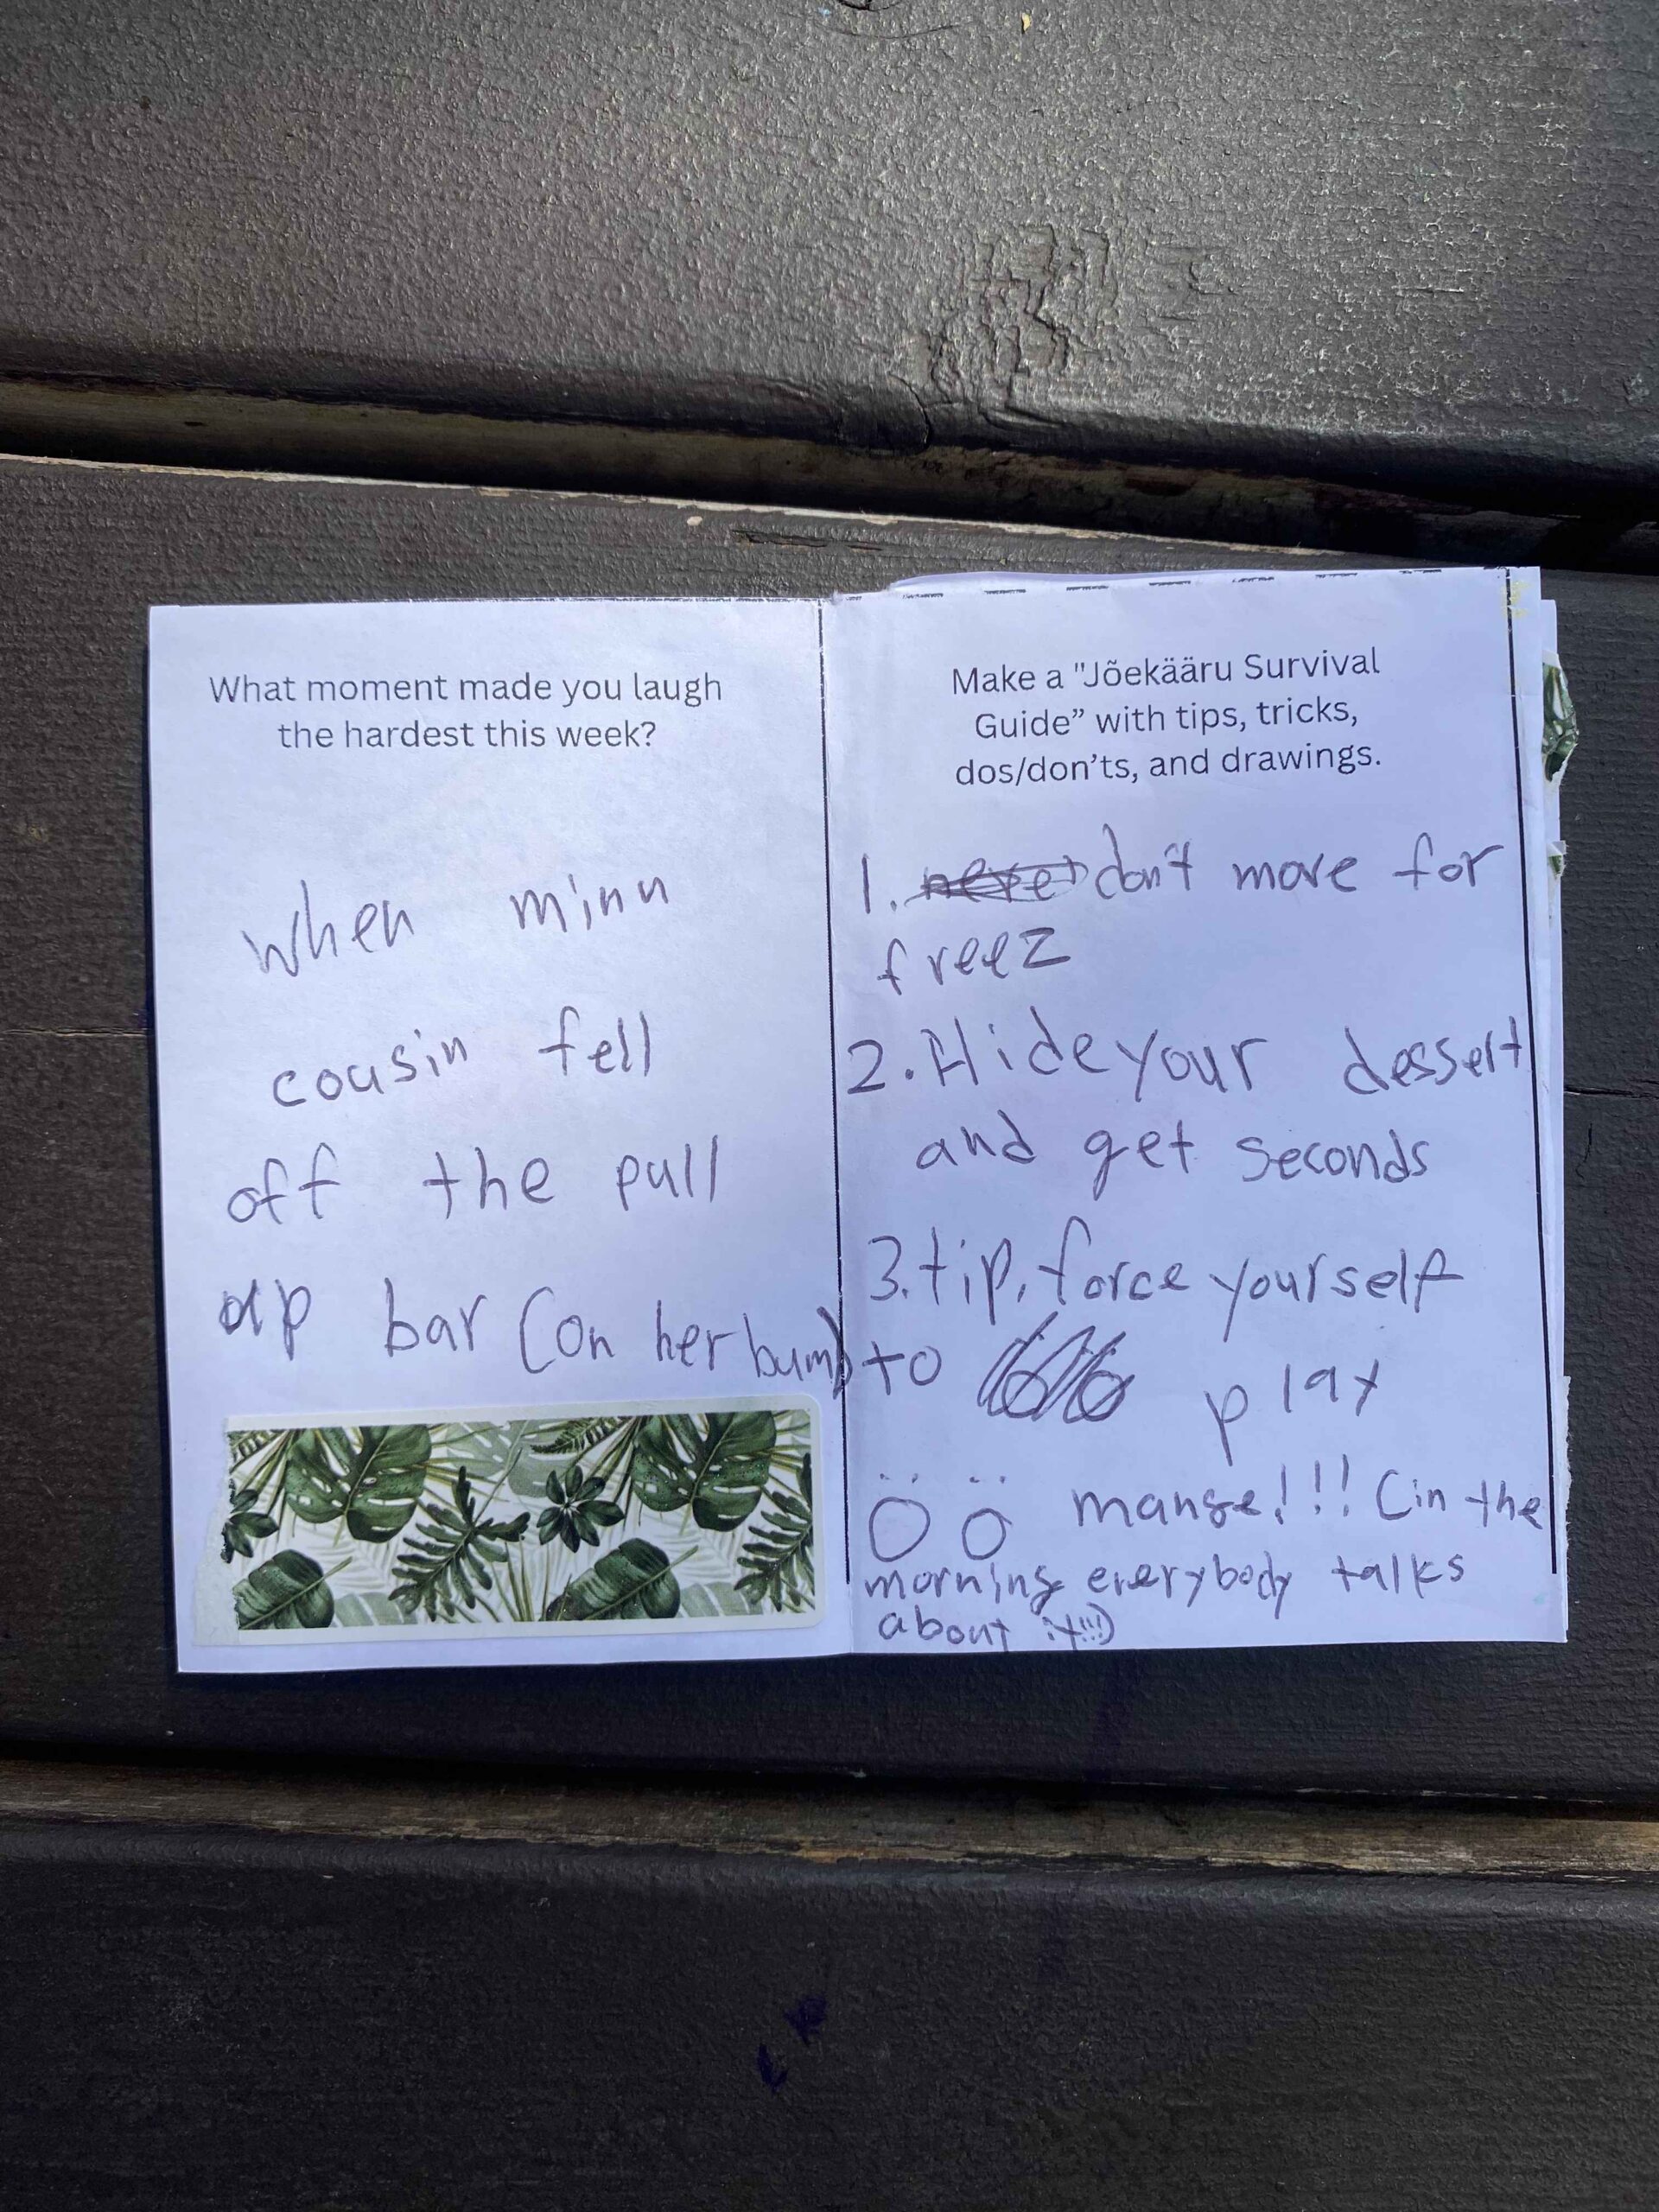 What moment made you laugh
the hardest this week?
when minu
cousin fell
off the pull
up bar (on her bum)
Make a "Jõekääru Survival
Guide” with tips, tricks,
dos/don’ts, and drawings.
1. never don't move for
freez
2. Hide your dessert
and get seconds
3. tip, force yourself
to play
öö mange!!! (in the
morning everybody talks
about it!!!)